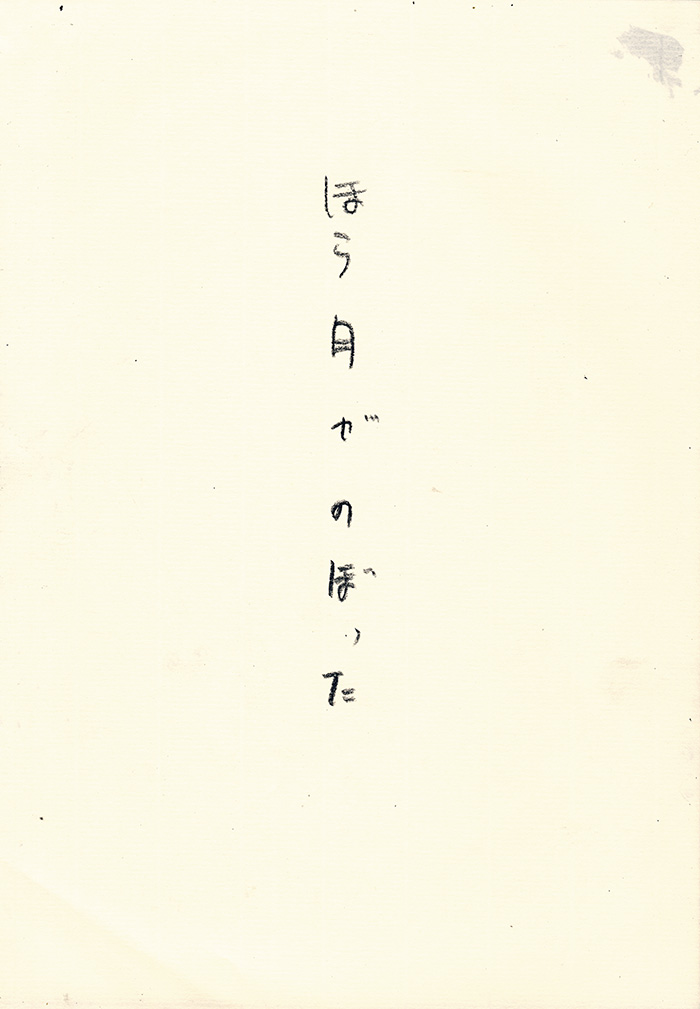 ほら月がのぼった